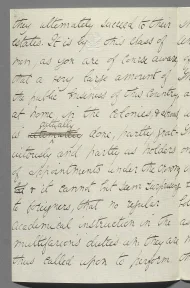 they ultimately succeed to their
estates. It is by this class of
men as you are of course aware
that a very large amount of
the public business of this Country
at home, in the Colonies &
gratuitously
is done, partly grat-
uitously and partly as holders
of appointments under the Crown
& it cannot but seem surprising
to foreigners, that no regular
academical instruction in the
multifarious duties wh they are
thus called upon to perform